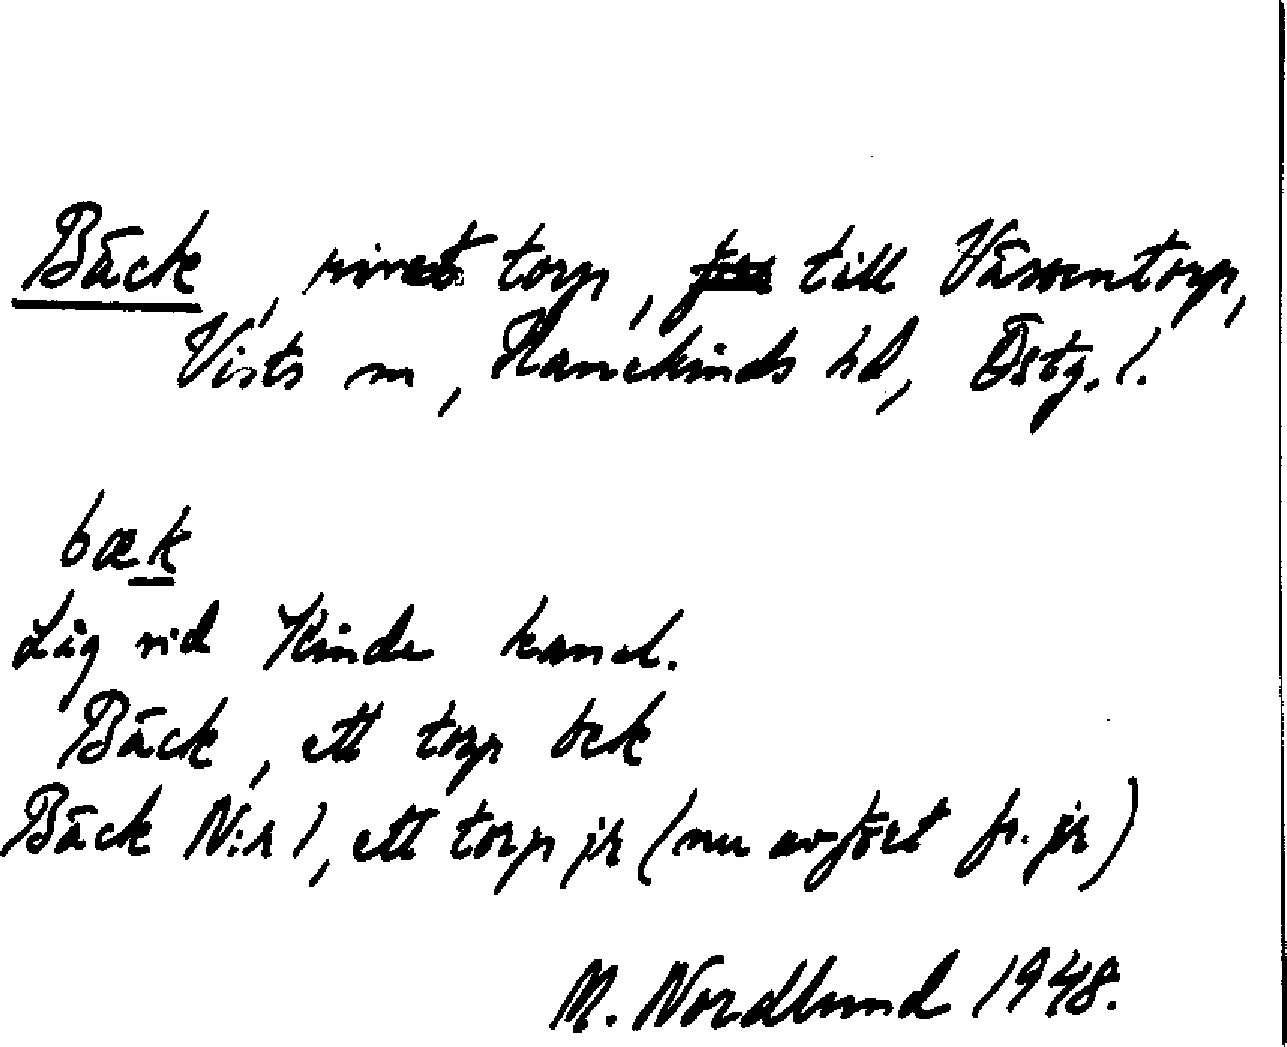 Bäck, rivet torp, till Våroentorp,
Vists sn, Hanekinds hd, Östg. l.
bæk
Låg vid Kinda kanal.
Bäck, ett torp bek
Bäck N:r 1, ett torp jr (nu avfört fr. jr)
M. Nordlund 1948.